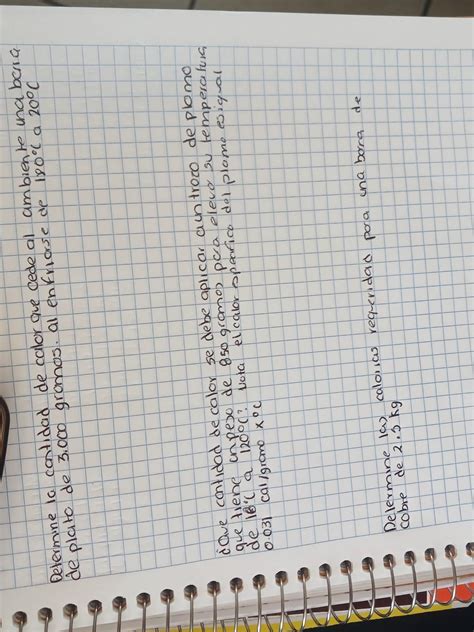 Determine la cantidad de calor que cede al ambiente una barra
de plata de 3.000 gramos. al enfriarse de 120°C a 20°C
¿Que cantidad de calor se debe aplicar a un trozo de plomo
que tiene un peso de 850 gramos para eleva su temperatura
de 18°C a 120°C? Nota el calor especifico del plomo es igual
0.031 cal/gramo x °C
Determine las calorias requeridas para una barra de
cobre de 2.5 kg